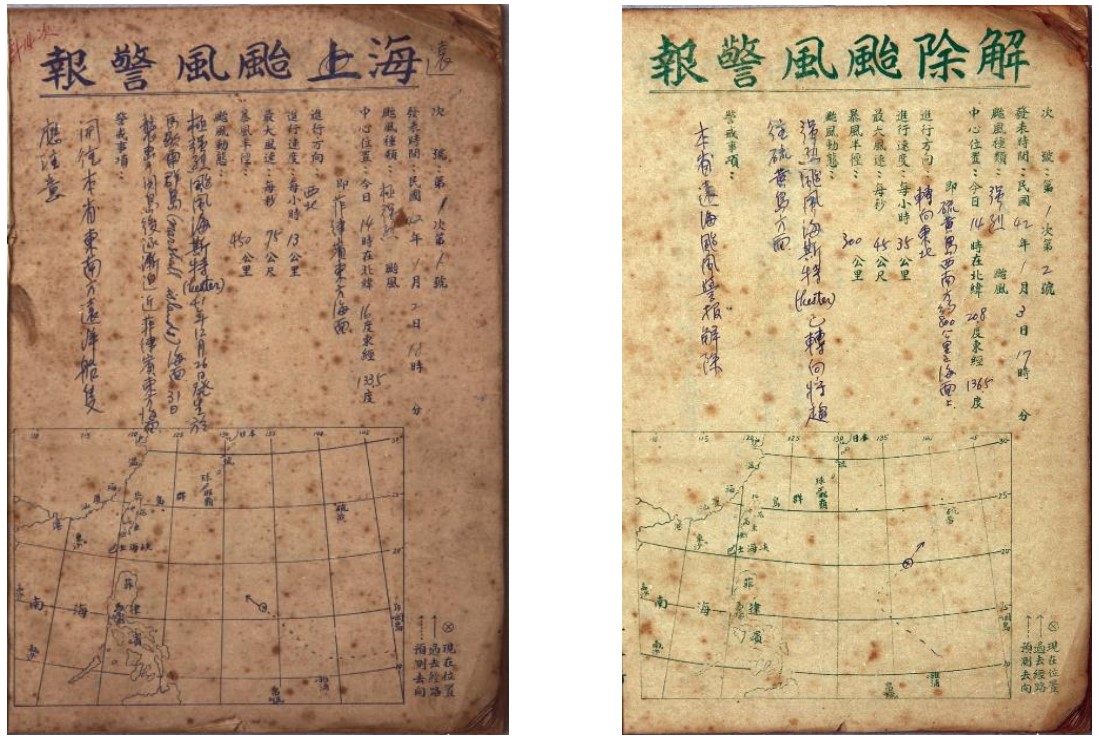 遠
海上颱風警報
次 號：第 1 次第 1 號
發表時間：民國 42 年 1 月 2 日 18 時 分
颱風種類：極強烈 颱風
中心位置：今日 14 時在北緯 16 度東經 133.5 度
即 菲律賓東方海面
進行方向：西北
進行速度：每小時 13 公里
最大風速：每秒 75 公尺
暴風半徑： 450 公里
颱風動態：
極強烈颱風海斯特(Hester)41年12月26日發生於
群島(Marshall Islands)海面31日
關島後逐漸迫近菲律賓東方海面
警戒事項：
開往本省東南方遠洋船隻
應注意
日本
琉球
群島
硫黃
巴士海峽
南海
菲律賓
⊗現在位置
過去經路
預測去向
解除颱風警報
次 號：第 1 次第 2 號
發表時間：民國 42 年 1 月 3 日 17 時 分
颱風種類：強烈 颱風
中心位置：今日 14 時在北緯 20.8 度東經 136.5 度
即 硫黃島西南方800公里海面上
進行方向：轉向東北
進行速度：每小時 35 公里
最大風速：每秒 45 公尺
暴風半徑： 300 公里
颱風動態：
強烈颱風海斯特(Hester)已轉向將趨
往硫黃島方面
警戒事項：
本省遠海颱風警報解除
日本
群島
巴士海峽
南海
菲律賓
⊗現在位置
過去經路
預測去向